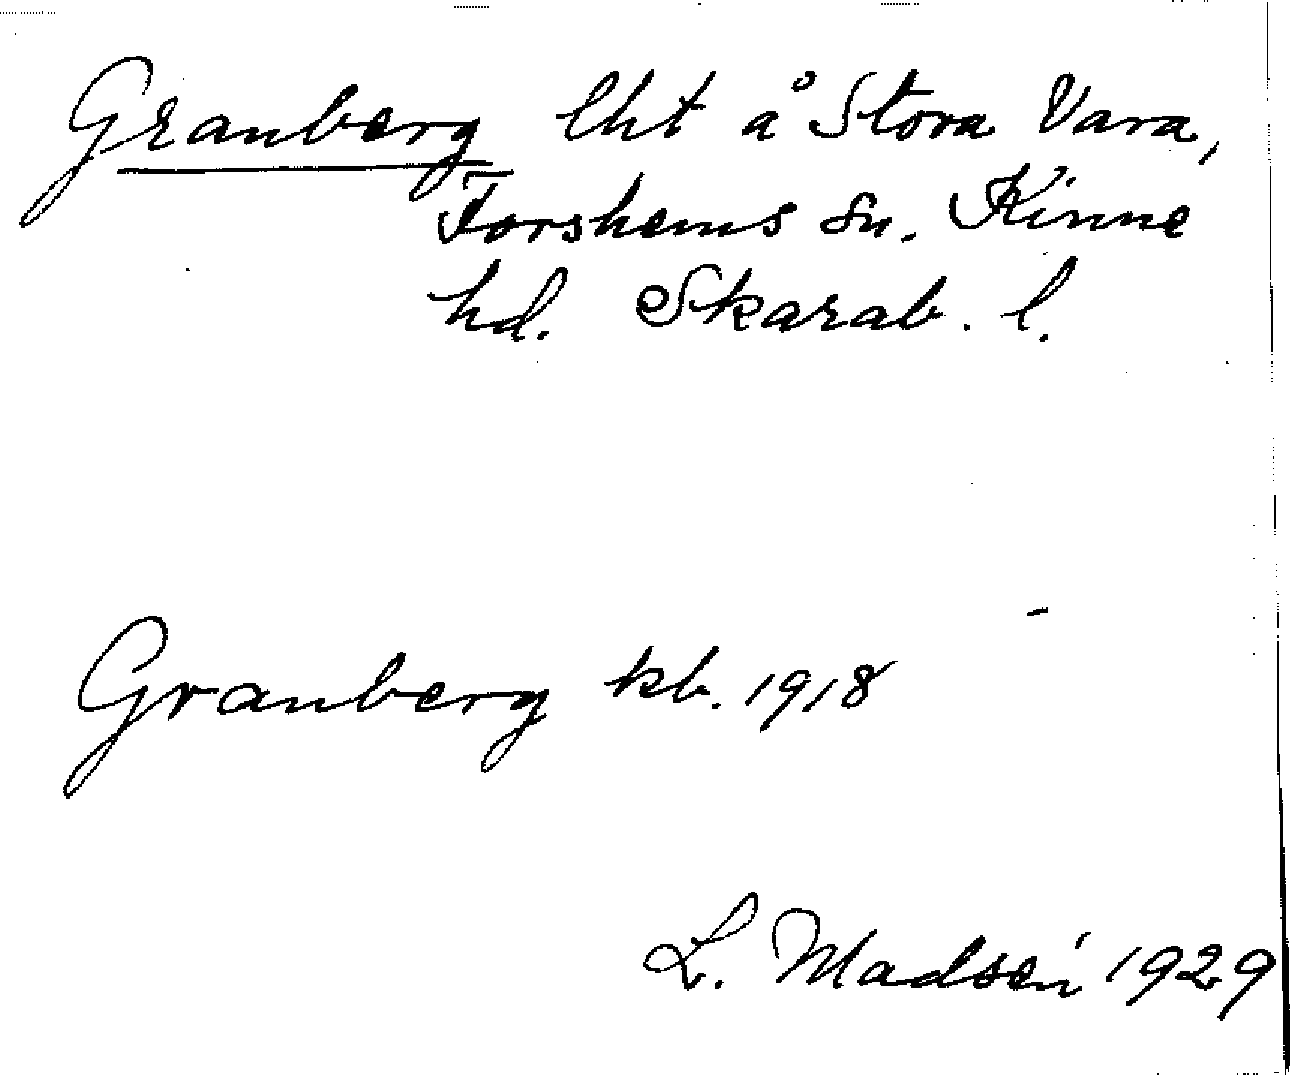 Granberg lht å Stora Vara,
Forshems sn. Kinne
hd. Skarab. l.
Granberg kb. 1918
L. Madsén 1929